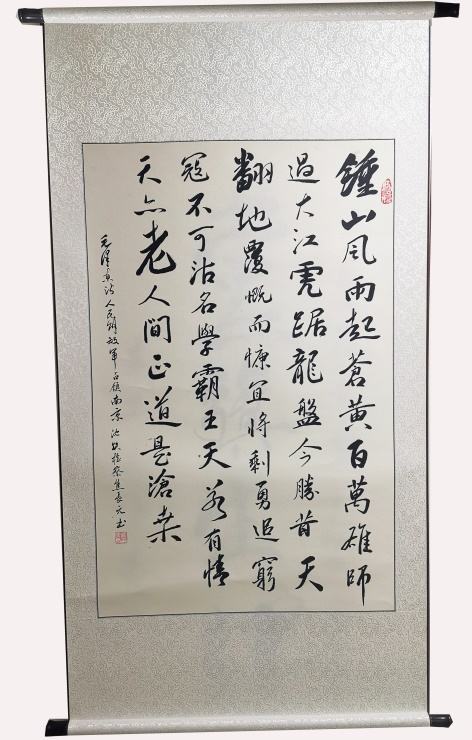 鍾山風雨起蒼黃百萬雄師
過大江虎踞龍盤今勝昔天
翻地覆慨而慷宜將剩勇追窮
寇不可沽名學霸王天若有情
天亦老人間正道是滄桑
毛澤东诗人民解放軍占領南京 书